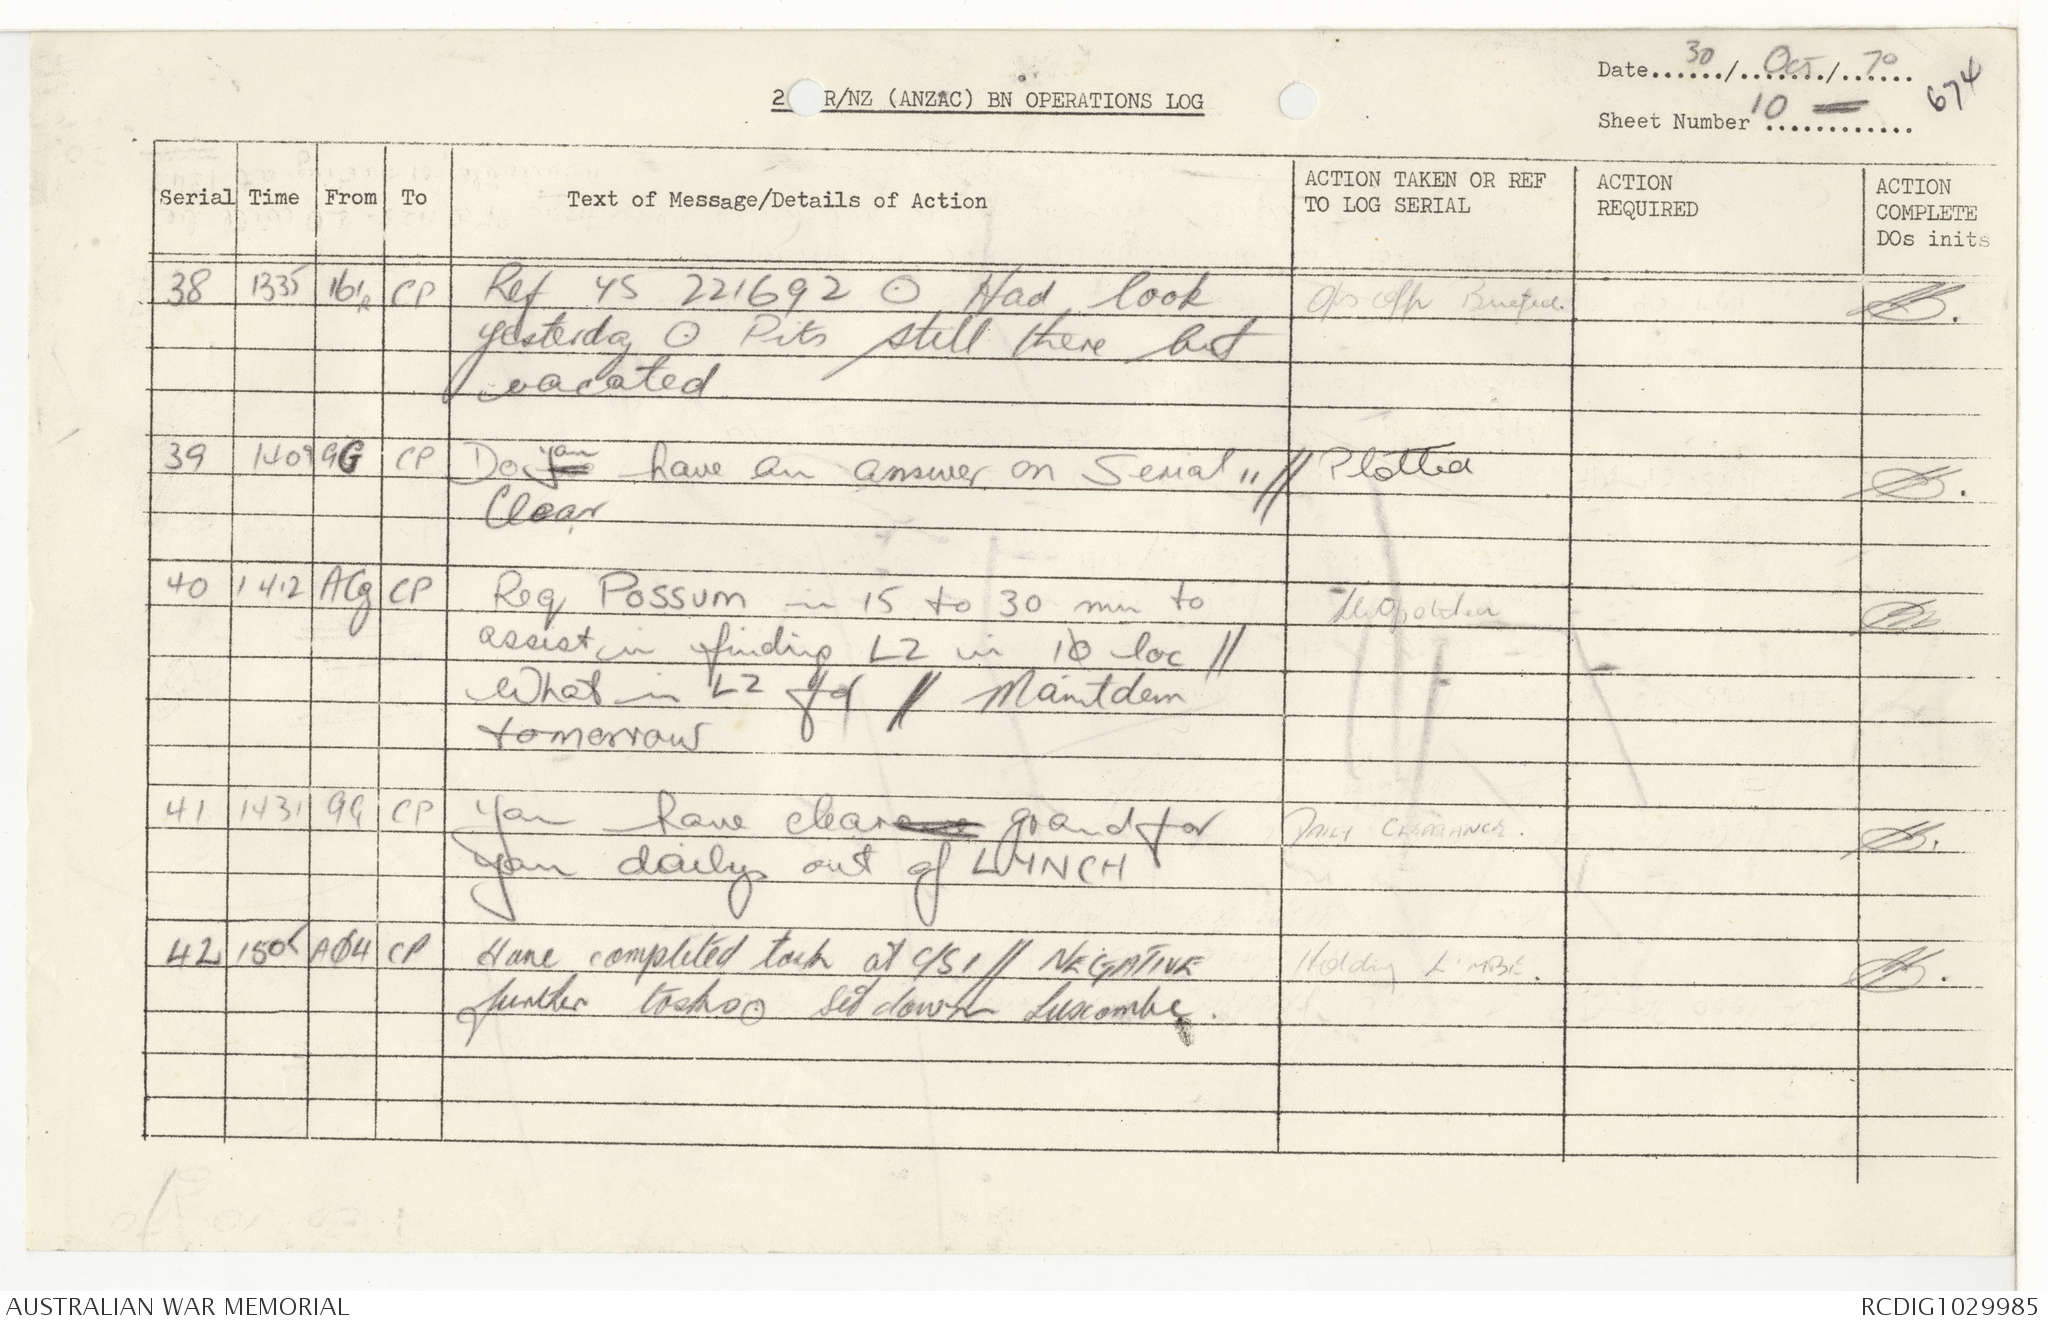 Date 30 / Oct / 70
674
2 R/NZ (ANZAC) BN OPERATIONS LOG
Sheet Number 10
Serial Time From To Text of Message/Details of Action ACTION TAKEN OR REF TO LOG SERIAL ACTION REQUIRED ACTION COMPLETE DOs inits
38 1335 161A CP Ref YS 221692 ⊙ Had look
yesterday ⊙ Pits still there but
vacated
39 1409 9G CP Do you have an answer on Serial 11 // Plotted
Clear
40 1412 ACG CP Req POSSUM in 15 to 30 min to
assist in finding LZ in 10 loc //
What in LZ for // Maintdem
tomorrow
41 1431 9G CP You have clear grand for DAILY CLEARANCE.
your daily out of LYNCH
42 1505 AØ4 CP Have completed task at C/S 1 // NEGATIVE Holding L'MBE.
further tasks ⊙ Sit down Luscombe.
AUSTRALIAN WAR MEMORIAL
RCDIG1029985